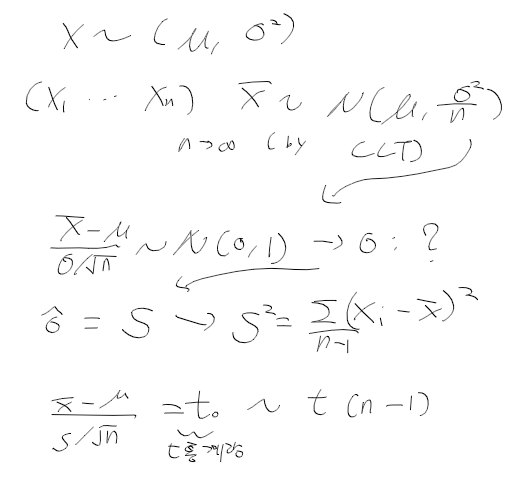 X ~ (μ, σ²)
(X₁ ... Xₙ) X̄ ~ N(μ, σ²/n)
n→∞ (by CLT)
(X̄-μ)/(σ/√n) ~ N(0,1) → σ: ?
σ̂ = S → S² = Σ(Xᵢ-X̄)²/(n-1)
(X̄-μ)/(S/√n) = t₀ ~ t(n-1)